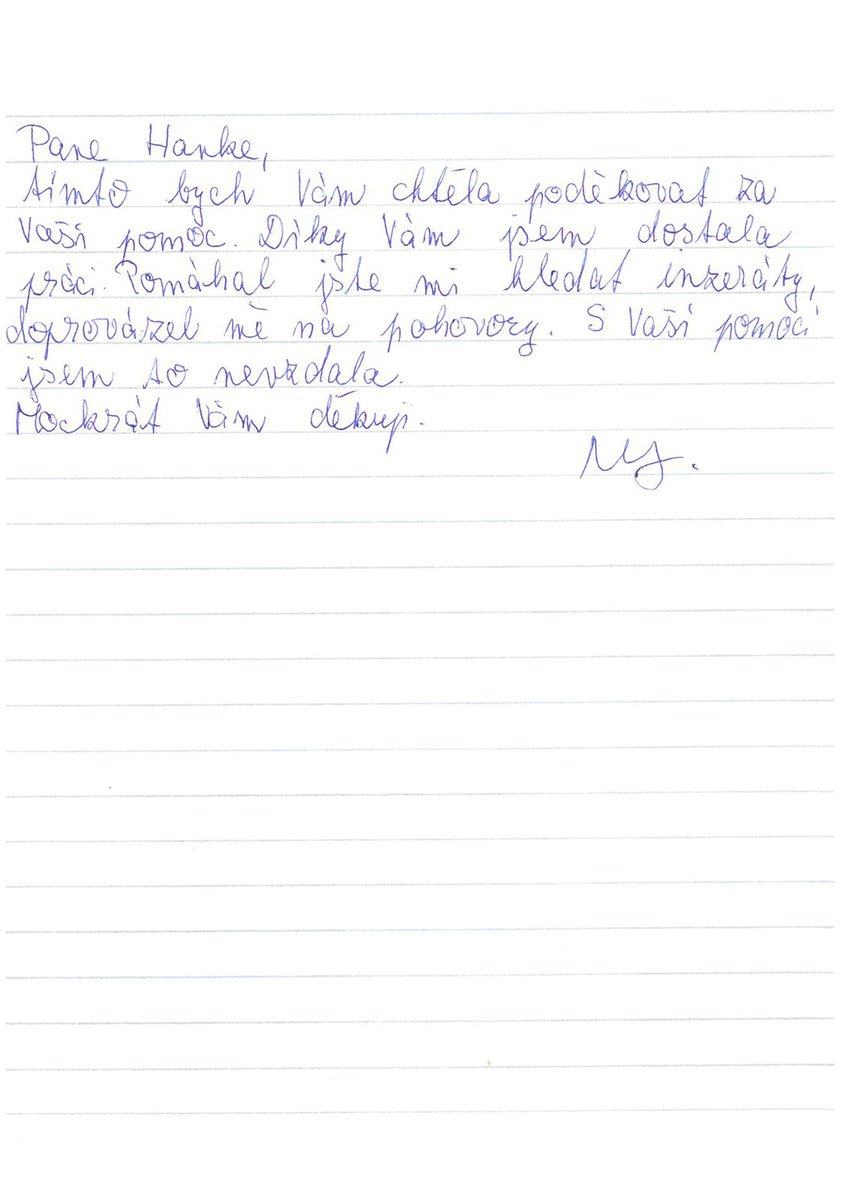 Pane Hanke,
tímto bych Vám chtěla poděkovat za
Vaši pomoc. Díky Vám jsem dostala
práci. Pomáhal jste mi hledat inzeráty,
doprovázel mě na pohovory. S Vaší pomocí
jsem to nevzdala.
Mockrát Vám děkuji.